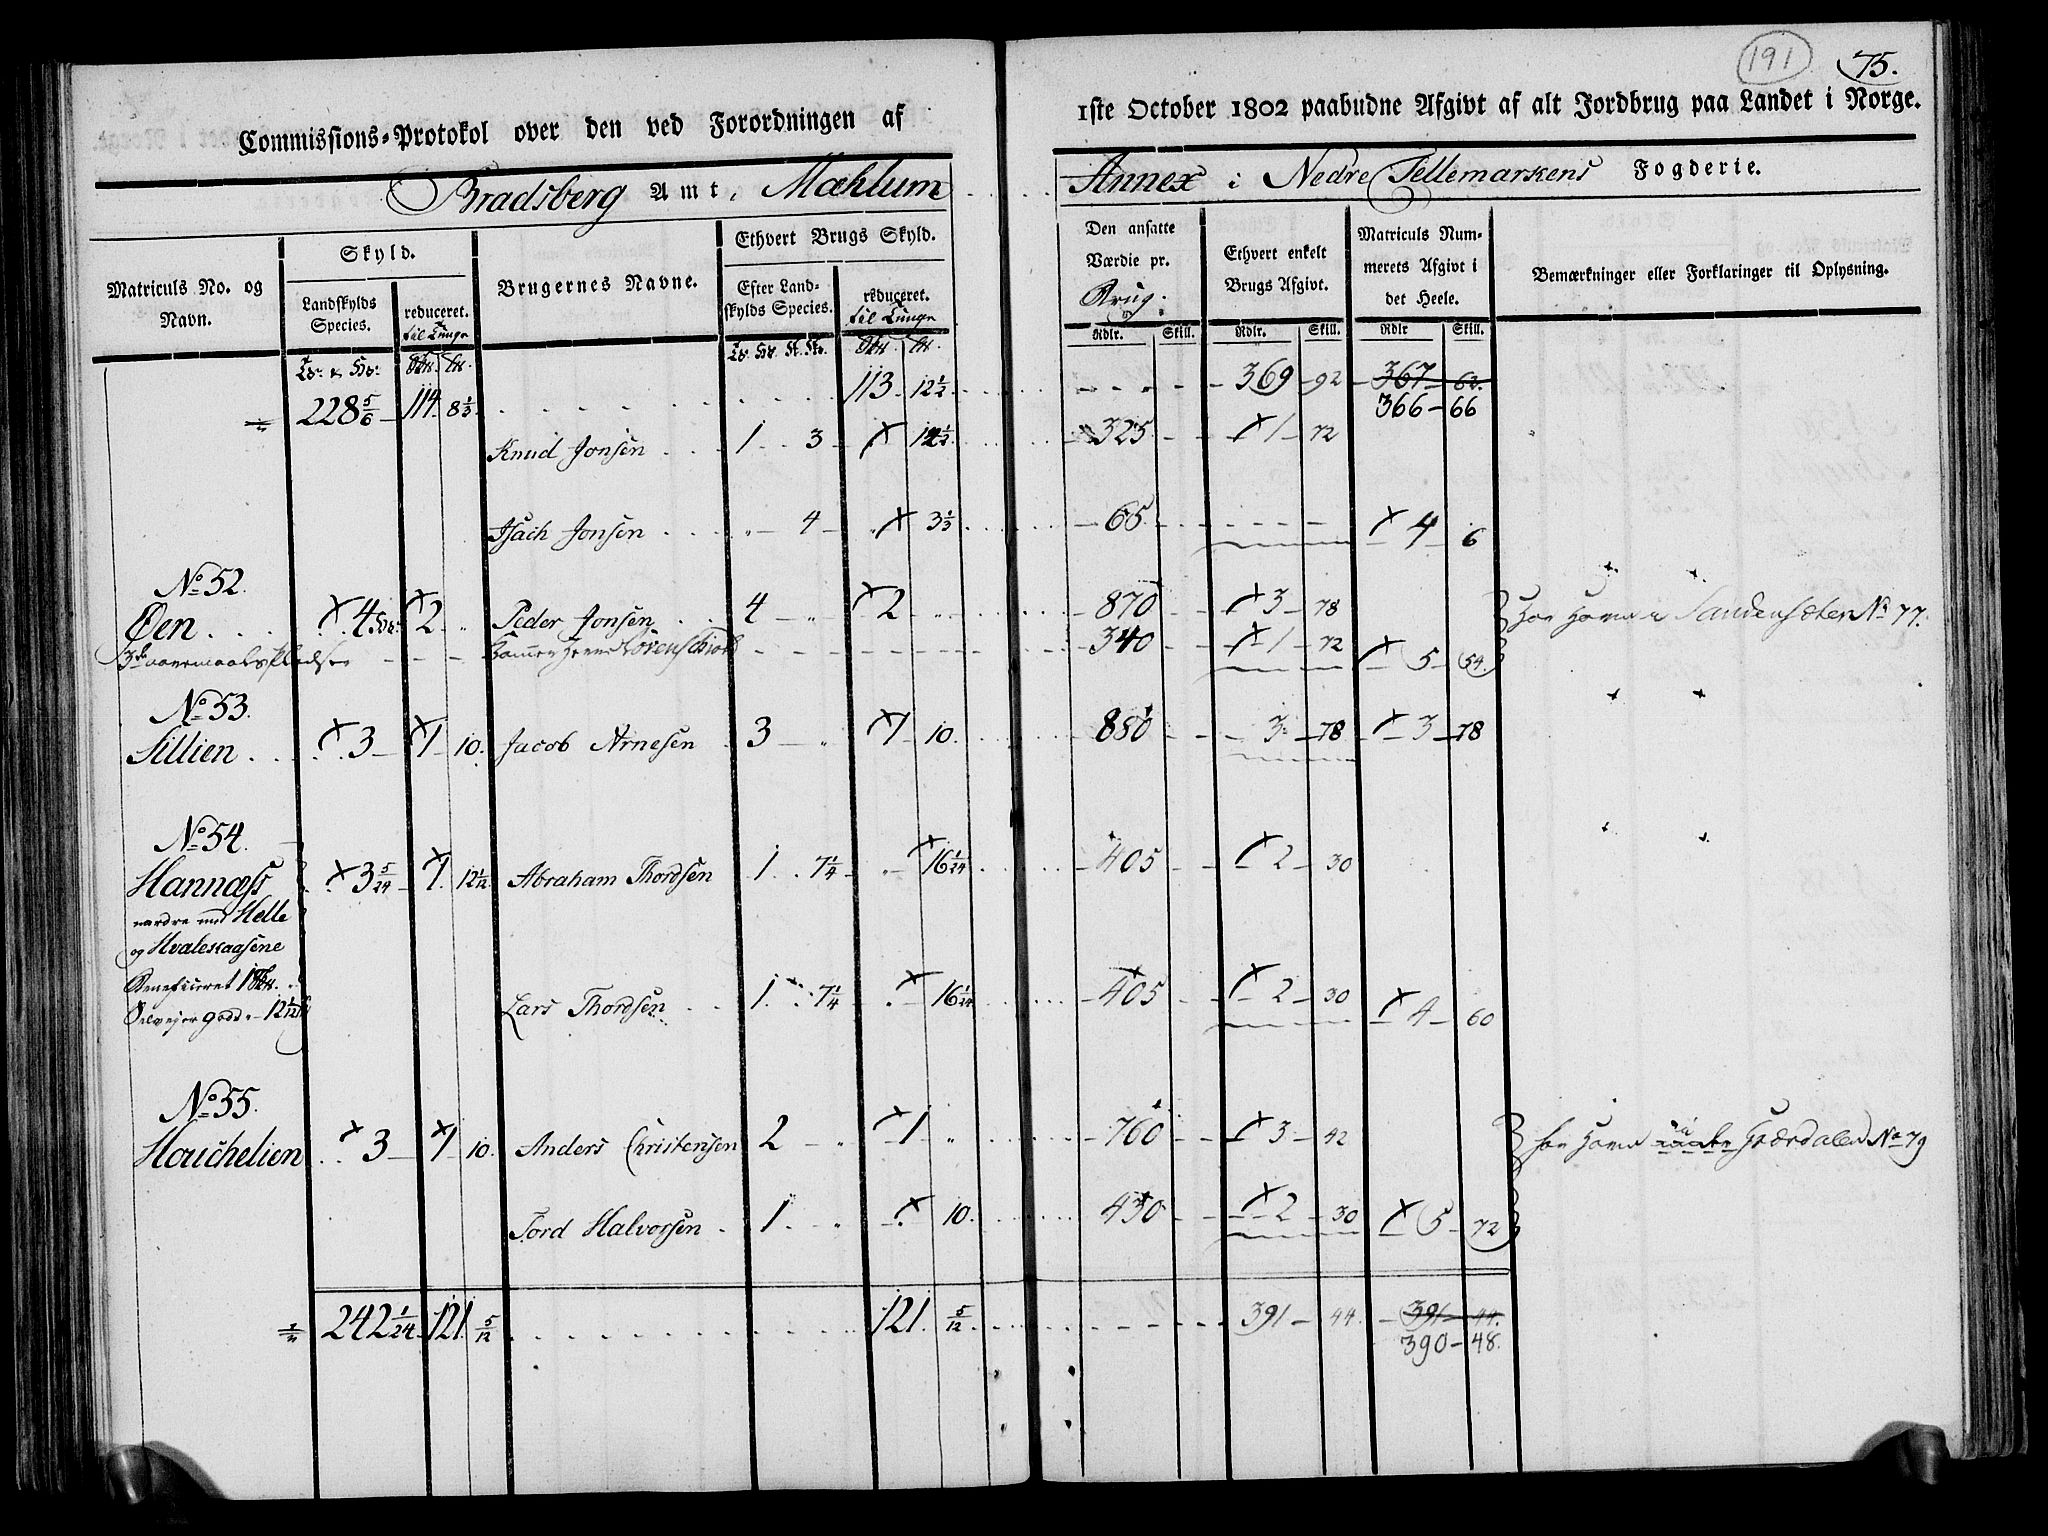 191 75.
Commissions-Protokol over den ved Forordningen af 1ste October 1802 paabudne Afgivt af alt Jordbrug paa Landet i Norge.
Bradsberg Amt, Mæhlum Annex i Nedre Tellemarkens Fogderie.
Matriculs No. og Navn.
Skyld.
Landskylds Species.
reduceret. til Tunge
Brugernes Navne.
Ethvert Brugs Skyld.
Efter Landskylds Species.
reduceret. til Tunge
Den ansatte Værdie pr. Brug.
Ethvert enkelt Brugs Afgivt.
Matriculs Nummerets Afgivt i det Heele.
Bemærkninger eller Forklaringer til Oplysning.
Rdlr. Skill. Rdlr. Skill. Rdlr Skill.
113 12 1/2 369 92 367 62.
228 5/6 114. 8 1/3 366 66
Knud Jonsen 1 3 12 1/2 325 1 72
Isach Jonsen 4 3 1/3 65 4 6
No 52.
Øen 4 2 Peder Jonsen 4 2 870 3 78 Sandensæter No 77.
340 1 72 5 54.
No 53.
Sillien 3 1 10. Jacob Arnesen 3 1 10. 880 3 78 3 78
No 54.
Hannæss 3 5/24 1 12 1/12 Abraham Thordsen 1 7 1/4 16 1/24 405 2 30
nordre med Helle
og Hvalesaasene
Beneficeret 1
Selvejer gods 12 1/12
Lars Thordsen 1 7 1/4 16 1/24 405 2 30 4 60
No 55.
Houchelien 3 1 10. Anders Christensen 2 1 760 3 42 Giærdalen No 79
Tord Halvorsen 1 10. 430 2 30 5 72
242 1/24 121 5/12 121. 5/12 391 44 391 44.
390 48.